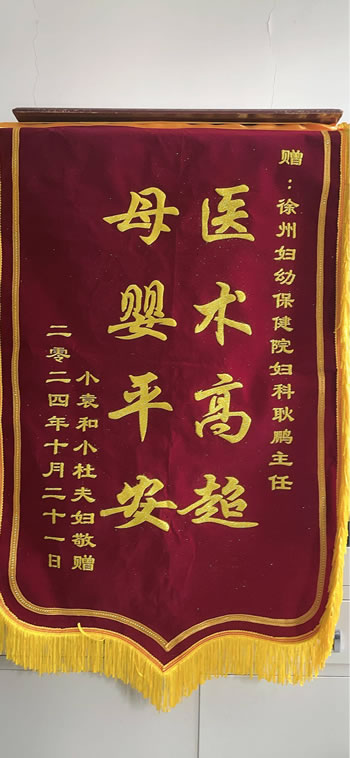 赠：徐州妇幼保健院妇科耿鹏主任
医术高超
母婴平安
小袁和小杜夫妇敬赠
二零二四年十月二十一日